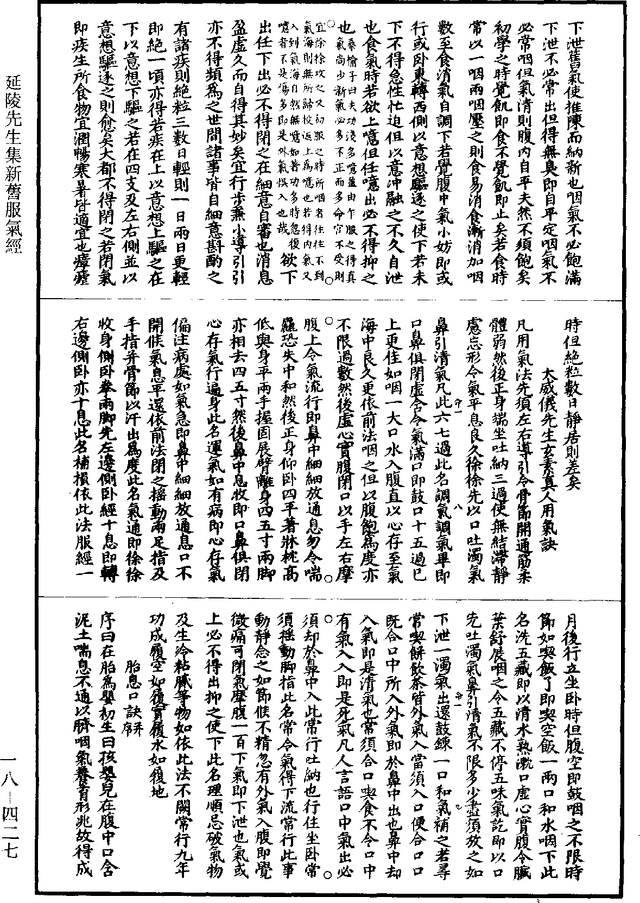 下泄舊氣使推陳而納新也咽氣不必飽滿
下泄不必常出但得無臭即自平定咽氣不
必常咽但氣清則腹內自平夫然不須飽矣
初學之時覺飢即食不覺飢即止矣若食時
常以一咽兩咽壓之則食易消食漸消加咽
數至食清氣自調下若覺腹中氣小妨即或
行或卧東轉西側以意想驅逐之使下若未
下不得急性忙迫但以意沖融之不久自泄
也食氣時若欲上噫但任噫出必不得抑之
桑榆子曰夫功淺多噫蓋由乍服之得真
也氣尚少新氣必多不正而多命宜不受則
宜徐徐吹之又初服之時所咽名往往不到
氣海則無所歸投返上為噫也若得內氣又
入到氣海自然無噫如著功多時忽復
噫者不是傷多即是外氣誤入也哉欲下
出任下出必不得閉之在細意自審也消息
盈虛久而自得其妙矣宜行步兼小導引引
亦不得頻為之世間諸事皆自細意斟酌之
有諸疾則絶粒三數日輕則一日兩日更輕
即絶一頃亦得若疾在上以意想上驅之在
下以意想下驅之若在四支及左右側並以
意想驅逐之則愈矣大都不得閉之若閉氣
即疾生所食物宜潤暢寒暑皆適宜也癉瘧
時但絶粒數日靜居則差矣
太威儀先生玄素真人用氣訣
凡用氣法先須左右導引令骨節開通筋柔
體弱然後正身端坐吐納三過使無結滯靜
慮忘形令氣平息良久徐徐先以口吐濁氣
鼻引清氣凡此六七過此名調氣調氣畢即
口鼻俱閉虛含令氣滿口即鼓口十五過已
上更佳如咽一大口水入腹直以心存至氣
海中良久更依前法咽之但以腹飽為度亦
不限過數然後虛心實腹閉口以手左右摩
腹上令氣流行即鼻中細細放通息勿令喘
麤恐失中和然後正身仰卧四平著牀枕高
低與身平兩手握固展臂離身四五寸兩腳
亦相去四五寸然後鼻中息牧即口鼻俱閉
心存氣行遍身此名運氣如有病即心存氣
偏注病處如氣急即鼻中細細放通息口不
開候氣息平還依前法閉之搖動兩足指及
手指并骨節以汗出為度此名氣通即徐徐
收身側卧拳兩腳先左邊側卧經十息即轉
右邊側卧亦十息此名補損依此法服經一
月後行立坐卧時但腹空即鼓咽之不限時
節如喫飯了即喫空飯一兩口和水咽下此
名洗五藏即以清水熟漱口虛心實腹令臟
葉舒展咽之令五藏不停五味氣訖即以口
先吐濁氣鼻引清氣不限多少盡須放之如
下泄一濁氣出還鼓鍊一口和氣補之若尋
常喫餅飲茶皆外氣入當須入口便合口口
既合口中所入外氣即於鼻中出也鼻中却
入氣即是清氣也常須合口喫食不令口中
有氣入入即是死氣凡人言語口中氣出必
須却於鼻中入此常行吐納也行住坐卧常
須搖動腳指此名常令氣得下流常行此事
動靜念之如節候不精忽有外氣入腹即覺
微痛可閉氣摩腹一百下氣即下泄也氣或
上必不得出抑之使下此名理順忌破氣物
及生冷粘膩等物如依此法不闕常行九年
功成履空如履實履水如履地
胎息口訣并序
序曰在胎為嬰初生曰孩嬰兒在腹中口含
泥土喘息不通以臍咽氣養育形兆故得成
延陵先生集新舊服氣經
一八-四二七